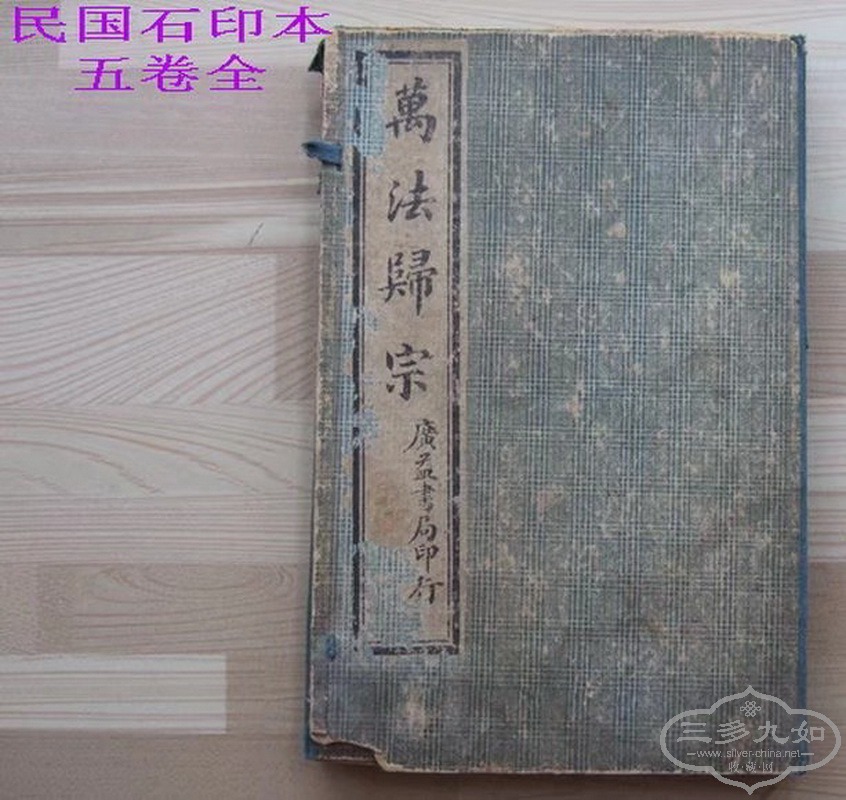 民国石印本
五卷全
萬法歸宗
廣益書局印行
三多九如
www.silver-china.net
收·藏·网